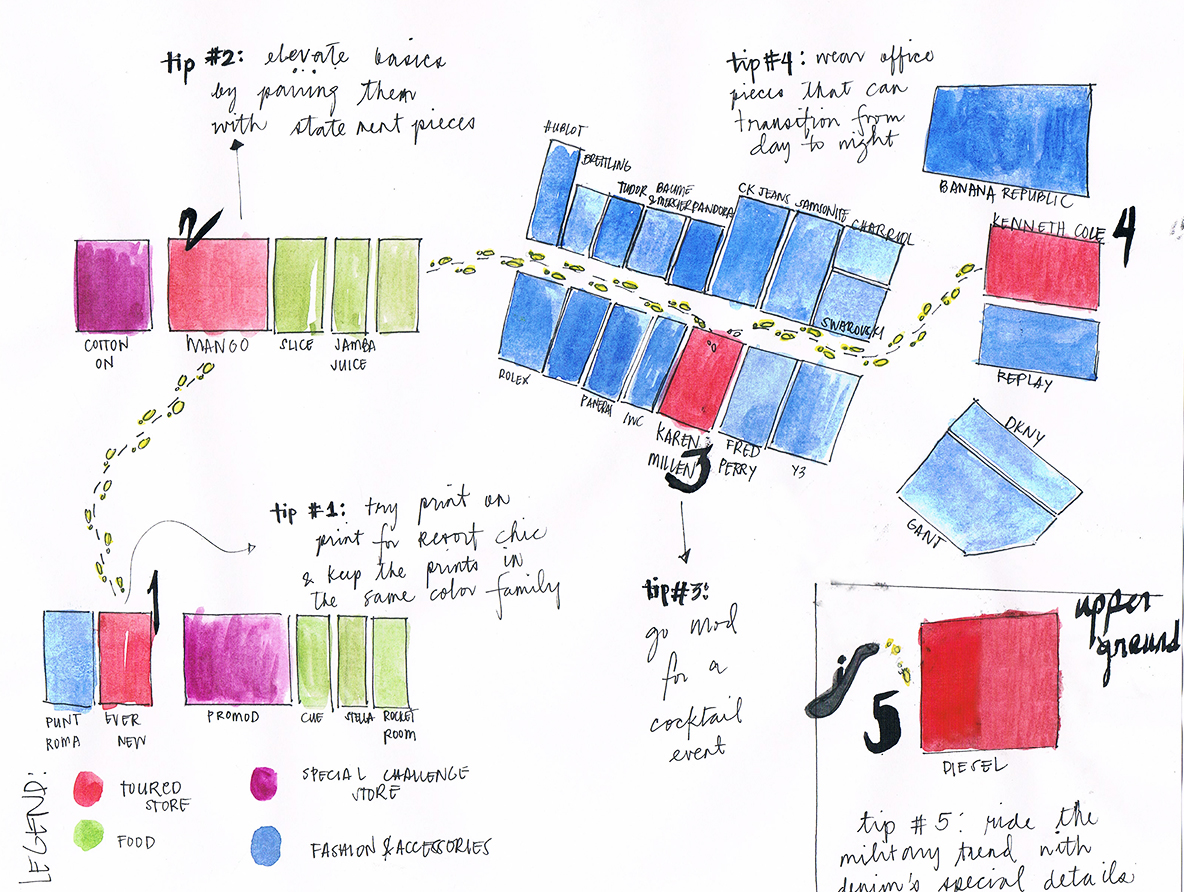 tip #2: elevate basics
by pairing them
with statement pieces
tip #4: wear office
pieces that can
transition from
day to night
HUBLOT
BREITLING
TUDOR
BAUME
& MERCIER
PANDORA
CK JEANS
SAMSONITE
CHARRIOL
SWAROVSKI
BANANA REPUBLIC
KENNETH COLE
4
REPLAY
2
COTTON
ON
MANGO
SLICE
JAMBA
JUICE
ROLEX
PANERAI
IWC
KAREN
MILLEN
3
FRED
PERRY
Y3
DKNY
GANT
tip #1: try print on
print for resort chic
& keep the prints in
the same color family
1
PUNT
ROMA
EVER
NEW
PROMOD
CUE
STELLA
ROCKET
ROOM
tip #3:
go mod
for a
cocktail
event
upper
ground
5
DIESEL
tip #5: ride the
military trend with
denim's special details
LEGEND:
TOURED
STORE
SPECIAL CHALLENGE
STORE
FOOD
FASHION & ACCESSORIES